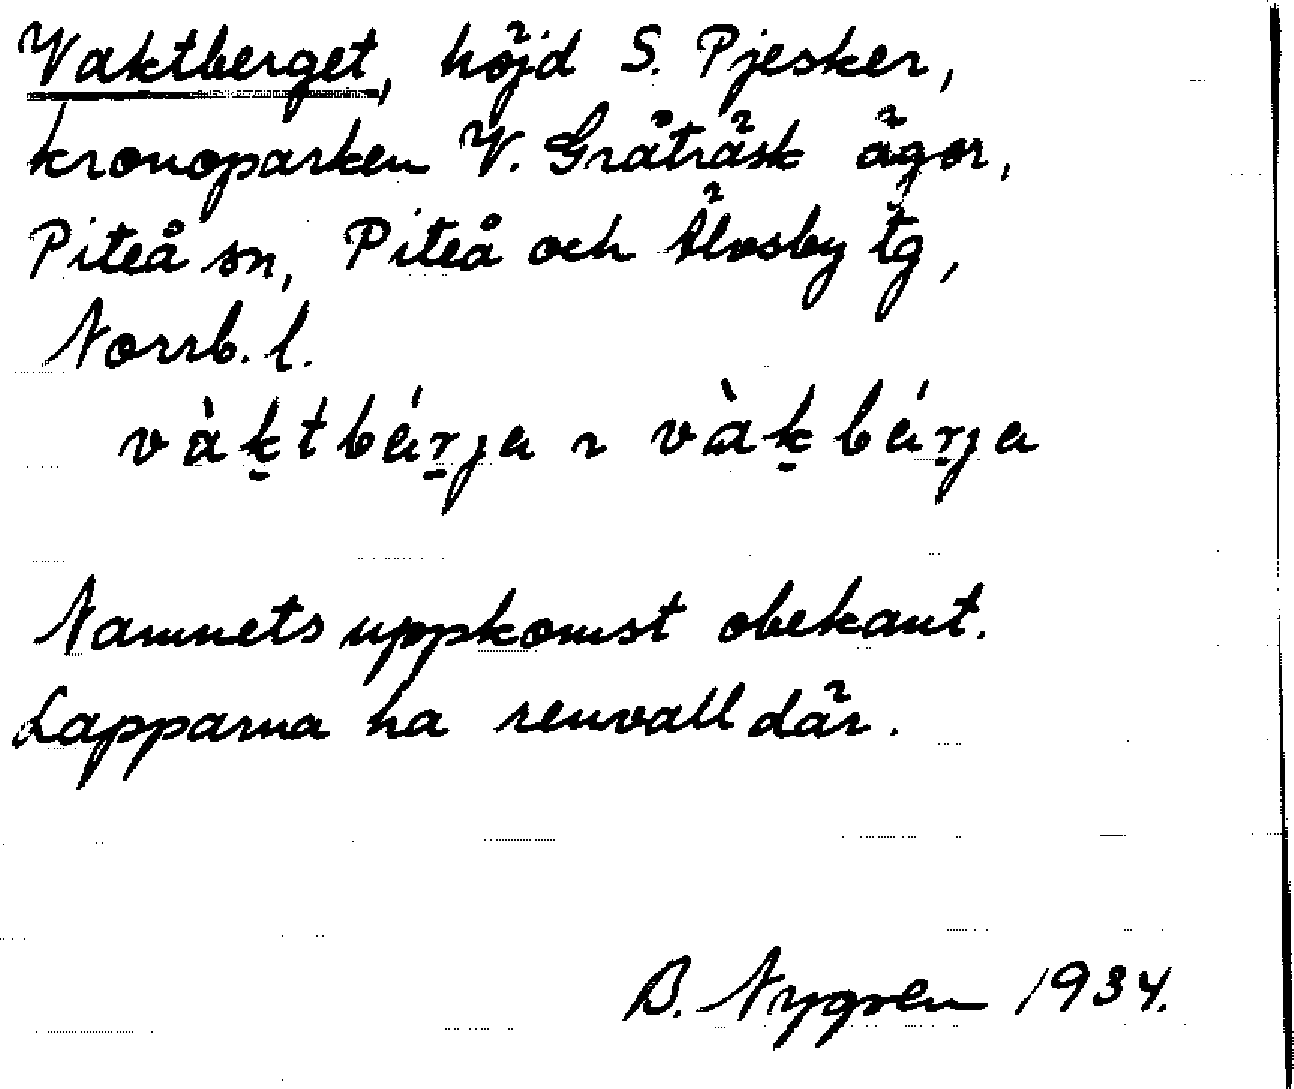 Vaktberget, höjd S. Pjesker,
kronoparken V. Gråträsk ägor,
Piteå sn, Piteå och Älvsby tg,
Norrb. l.
vàḵtbáṟja ~ vàḵbáṟja
Namnets uppkomst obekant.
Lapparna ha renvall där.
B. Nygren 1934.